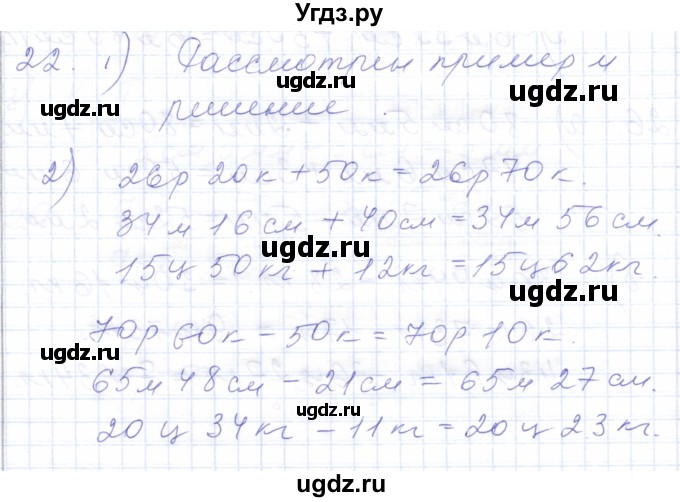 Угдз.ру
22. 1) Рассмотрим пример и
решение.
2) 26р 20к + 50к = 26р 70к.
34м 16см + 40см = 34м 56см.
15ц 50кг + 12кг = 15ц 62кг.
70р 60к - 50к = 70р 10к.
65м 48см - 21см = 65м 27см.
20ц 34кг - 11кг = 20ц 23кг.
ugdz.ru
ugdz.ru
ugdz.ru
ugdz.ru
ugdz.ru
ugdz.ru
ugdz.ru
ugdz.ru
ugdz.ru
ugdz.ru